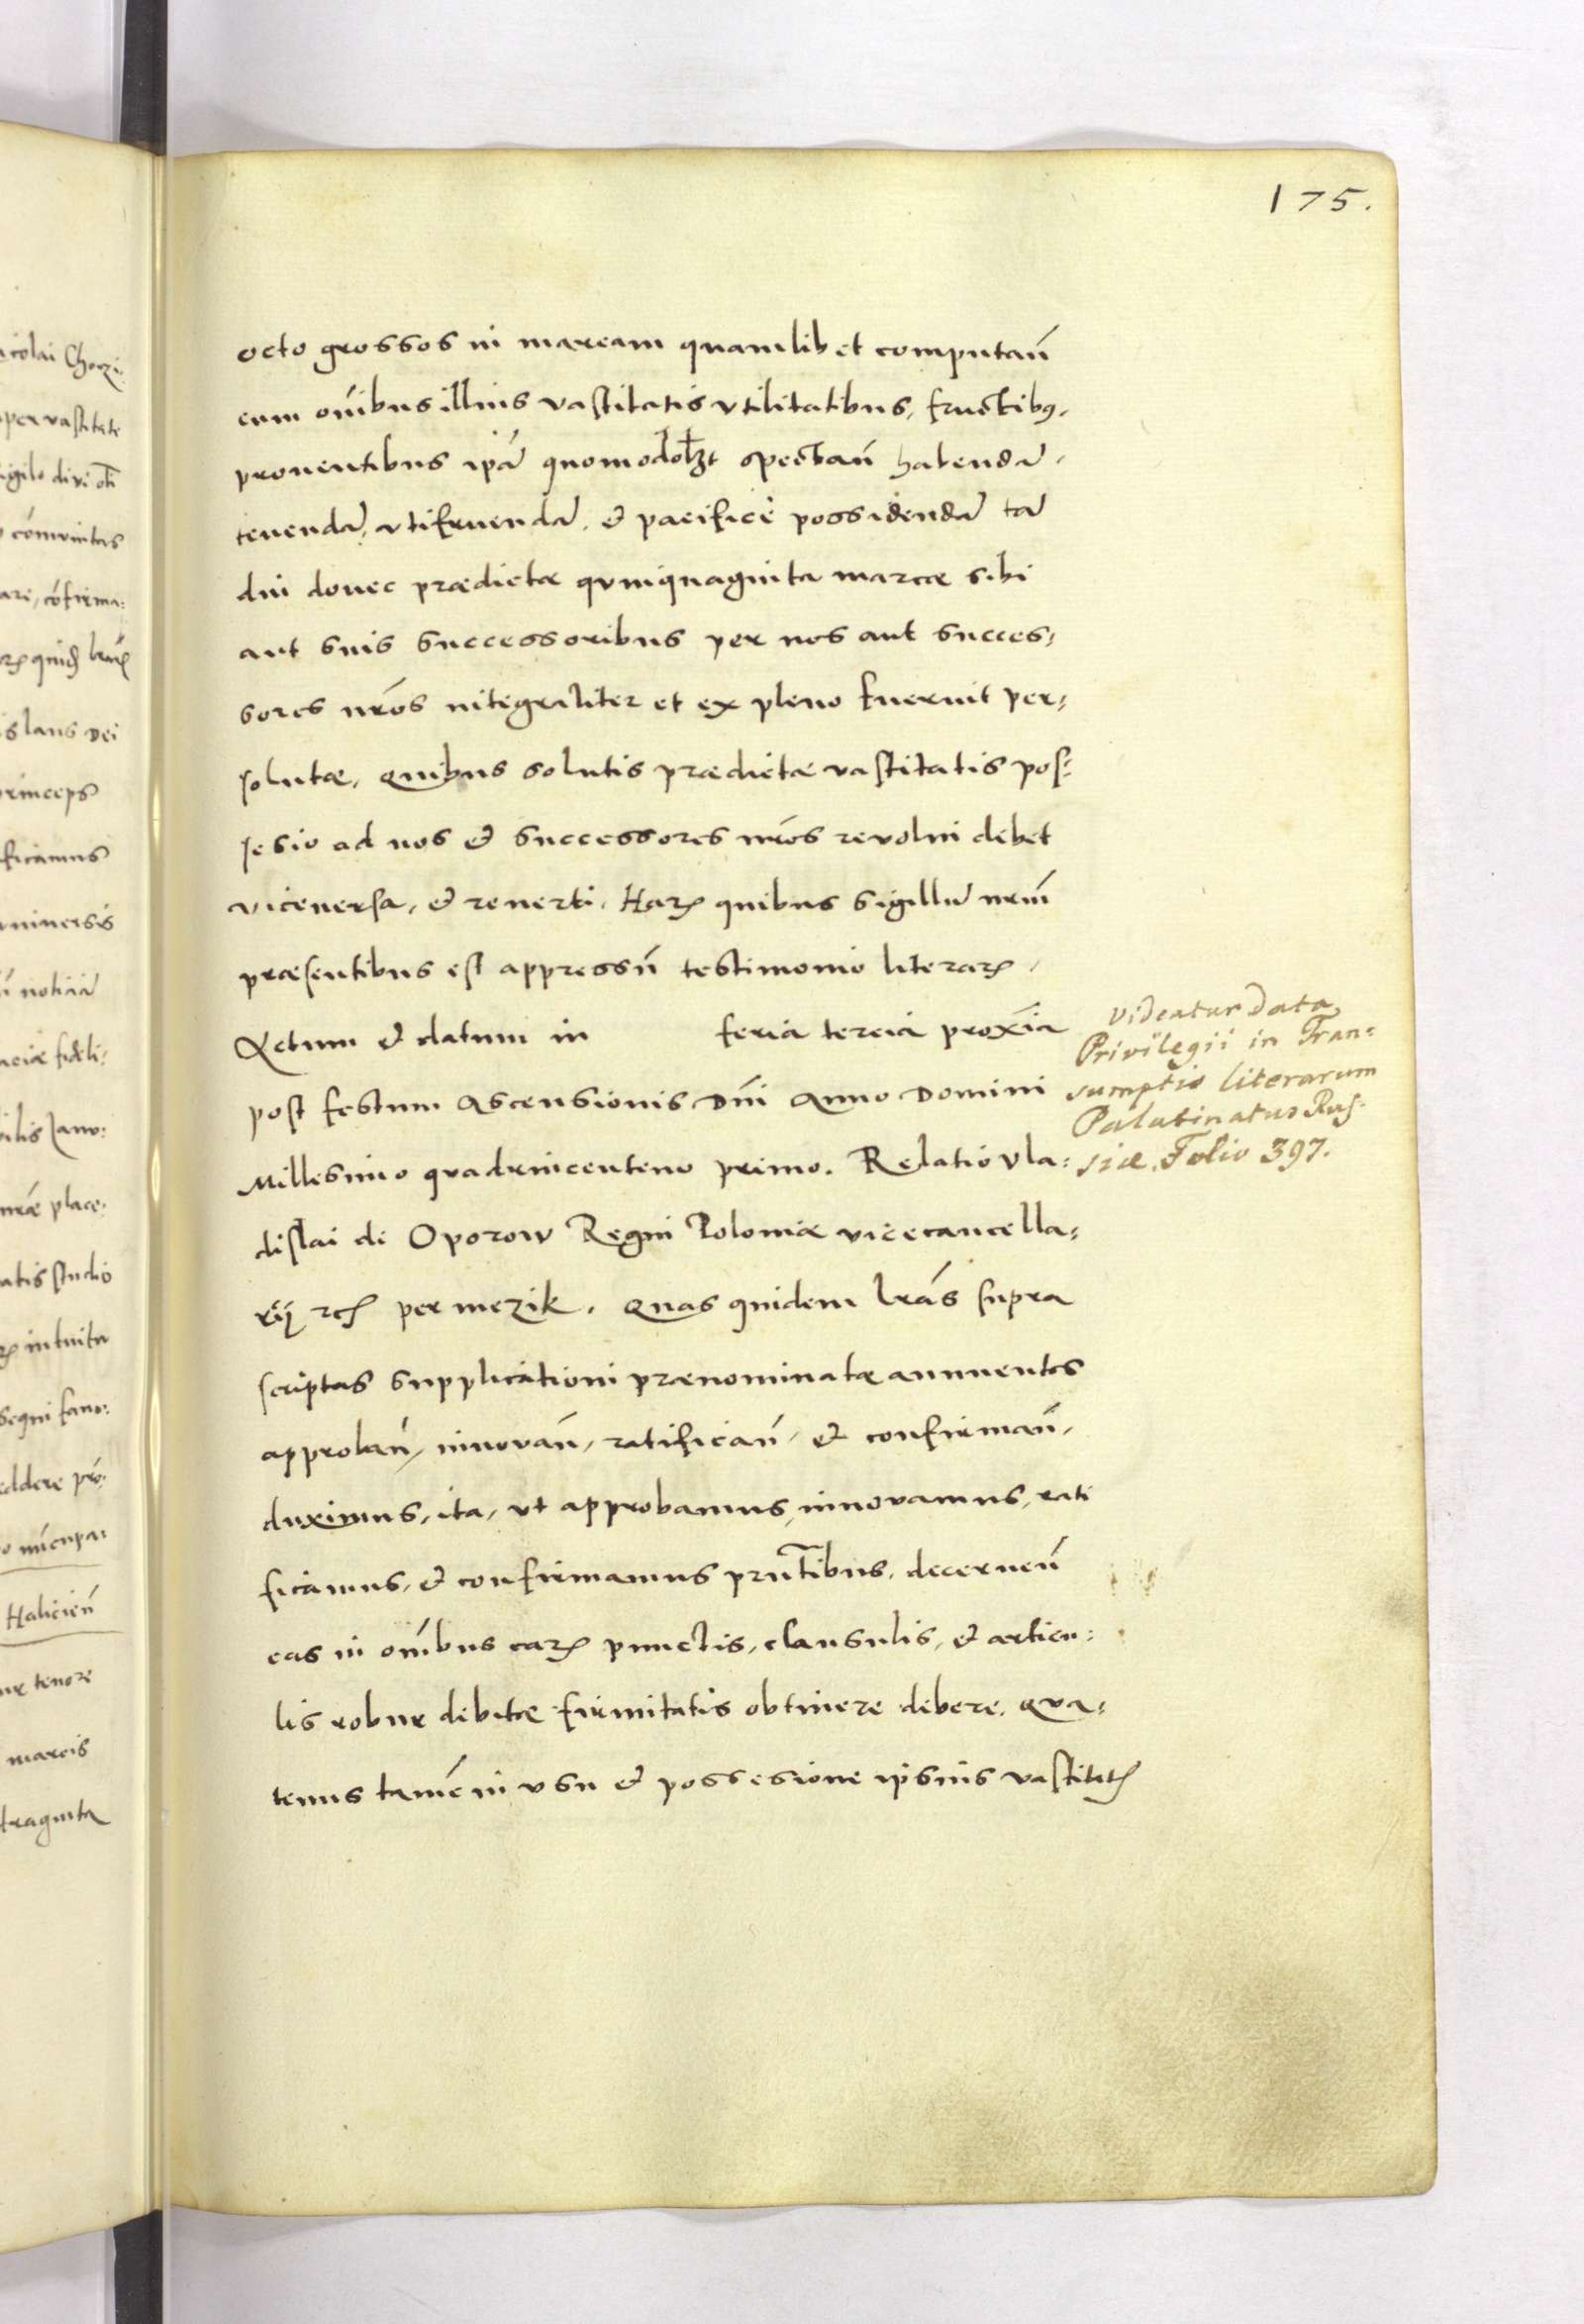 175.
octo grossos in marcam quamlibet computañ
cum om̃ibus illius vastitatis vtilitatibus, fructibꝰ,
prouentibus ip̃ã quomodolꝫt spectañ habendã,
tenendã, vtifruendã, & pacificè possidendã tã
diu donec prædictæ quinquaginta marcæ sibi
aut suis successoribus per nos aut succes,
sores nr̃os integraliter et ex pleno fuerint per,
solutæ, quibus solutis prædictæ vastitatis pos:
sesio ad nos & successores nr̃os reuolui debet
viceuersa, & reuerti. Harꝝ quibus sigillũ nrm̃
præsentibus est appressũ testimonio literarꝝ.
Actum & datum in feria tercia proxĩa
post festum Ascensionis Dñi Anno Domini
Millesimo quadrincenteno primo. Relatio Vla:
dislai di Oporow Regni Poloniæ vicecancella,
rij rꝭ per mezik. Quas quidem lr̃as supra
scriptas supplicationi prænominatæ annuentes
approbañ, innovañ, ratificañ, & confirmañ,
duximus, ita, vt approbamus, innovamus, rati
ficamus, & confirmamus prñtibus, decerneñ
eas in om̃ibus earꝝ punctis, clausulis, & articu:
lis robur debitæ firmitatis obtinere debere, qva,
tenus tamẽ in vsu & possesione ipsius vastitatꝭ
videatur data
Privilegii in Tran=
sumptis literarum
Palatinatus Rus=
siæ. Folio 397.
icolai Chorzi:
per vastitate
igilo diui
comunitas
ari, cõfirma:
islaus Dei
rinceps
ficamus
niuersis
noticiã
aciæ fideli:
bilis Jano:
nr̃æ place:
atis studio
intuitu
segni fauo:
eddere pro:
nũcupa:
Halicieñ
tenore
marcis
traginta